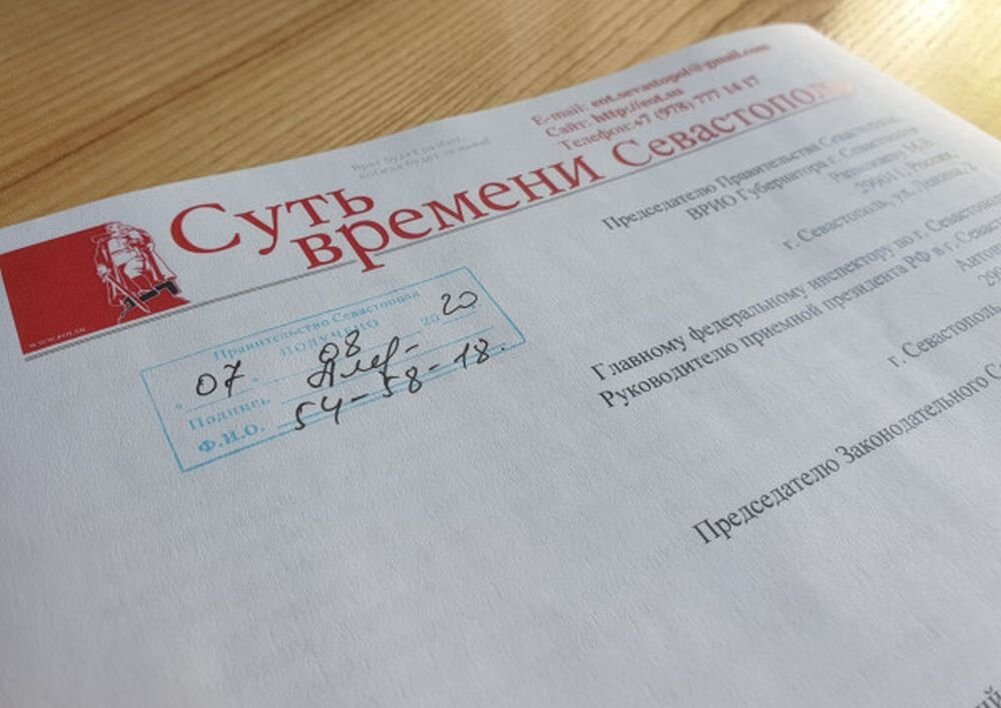 Враг будет разбит,
победа будет за нами!
E-mail: eot.sevastopol@gmail.com
Сайт: http://eot.su
Телефон:+7 (978) 777 14 17
Суть
времени Севастополь
www.eot.su
Правительство Севастополя
ПОЛУЧЕНО
" 07 08 20 20
Подпись
Ф.И.О. 54-58-18.
Председателю Правительства Севастополя,
ВРИО Губернатора г. Севастополя
Развожаеву М.В.
299011, Россия,
г. Севастополь, ул. Ленина, 2
Главному федеральному инспектору по г. Севастополю
Руководителю приемной президента РФ в г. Севас
Антон
г. Севастополь
Председателю Законодательного С